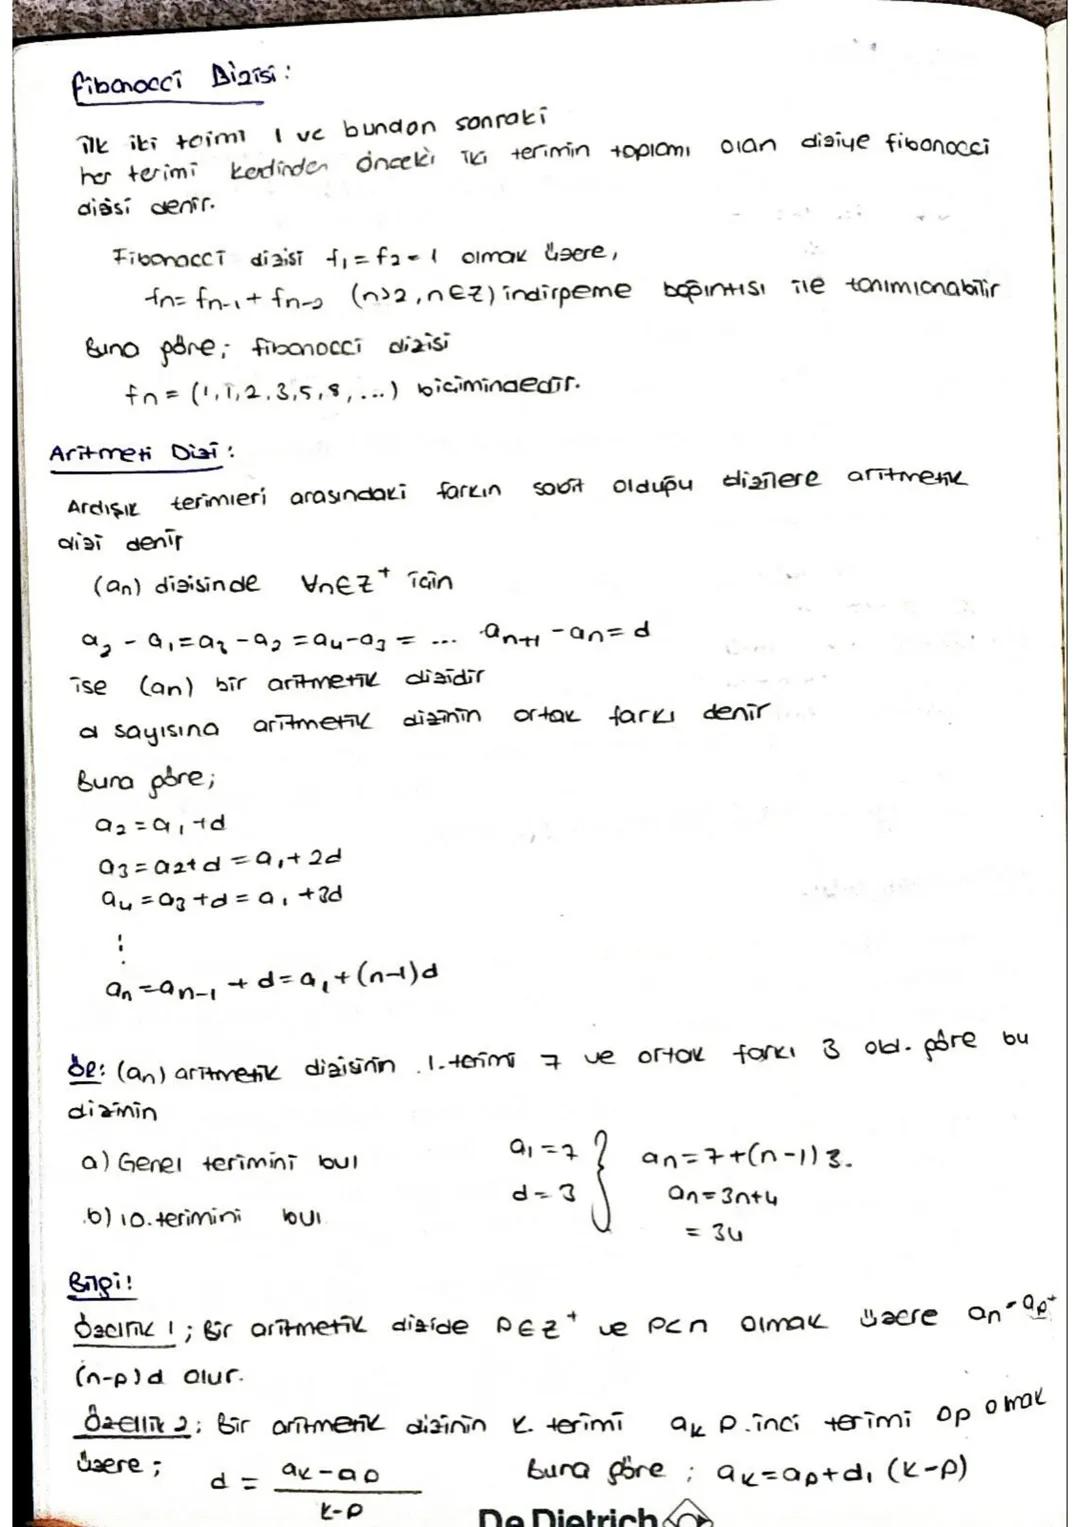 Fibonacci Dizisi:
ilk iki terimi 1 ve bundan sonraki
her terimi kendinden önceki iki terimin toplamı olan diziye fibonacci
dizisi denir.
Fibonacci dizisi f₁ = f₂ = 1 olmak üzere,
fn = fn-1 + fn-2 (n>2, n∈Z) indirgeme bağıntısı ile tanımlanabilir
Buna göre; fibonacci dizisi
fn = (1,1,2,3,5,8,...) biçimindedir.
Aritmeti Dizi:
Ardışık terimleri arasındaki farkın sabit olduğu dizilere aritmetik
dizi denir
(an) dizisinde ∀n∈Z⁺ için
a₂ - a₁ = a₃ - a₂ = a₄ - a₃ = ... an+1 - an = d
ise (an) bir aritmetik dizidir
d sayısına aritmetik dizinin ortak farkı denir
Buna göre;
a₂ = a₁ + d
a₃ = a₂ + d = a₁ + 2d
a₄ = a₃ + d = a₁ + 3d
⋮
an = an-1 + d = a₁ + (n-1)d
ör: (an) aritmetik dizisinin 1. terimi 7 ve ortak farkı 3 old. göre bu
dizinin
a) Genel terimini bul a₁ = 7 } an = 7 + (n-1)3.
d = 3 an = 3n+4
b) 10. terimini bul = 34
Bilgi!
Özellik 1; Bir aritmetik dizide p∈Z⁺ ve p<n olmak üzere an = ap +
(n-p)d olur.
Özellik 2; Bir aritmetik dizinin k. terimi ak p.inci terimi ap olmak
üzere; d = ak - ap / k-p Buna göre; ak = ap + d, (k-p)
De Dietrich